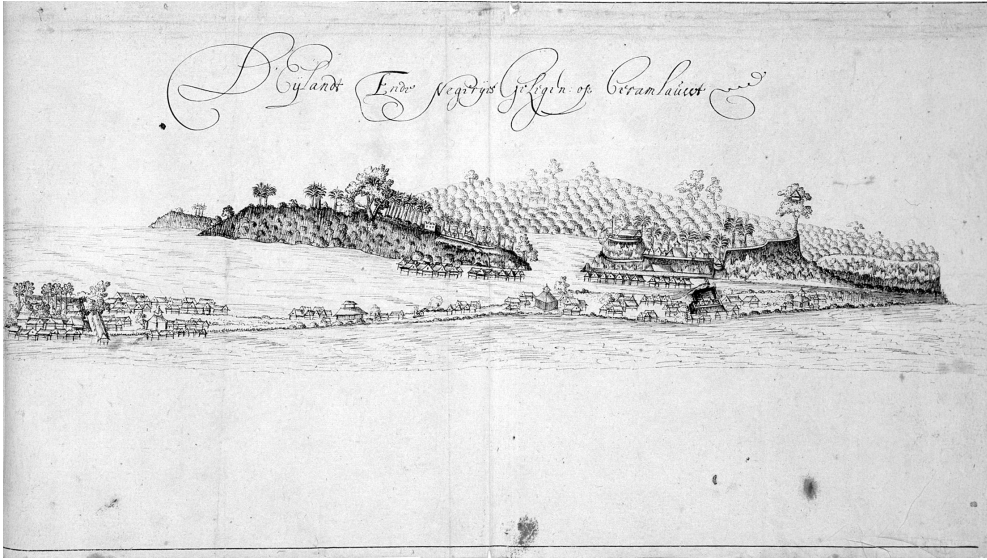 D' Eÿlandt Ende Negerÿes Geligen: op: Ceramlaúwt